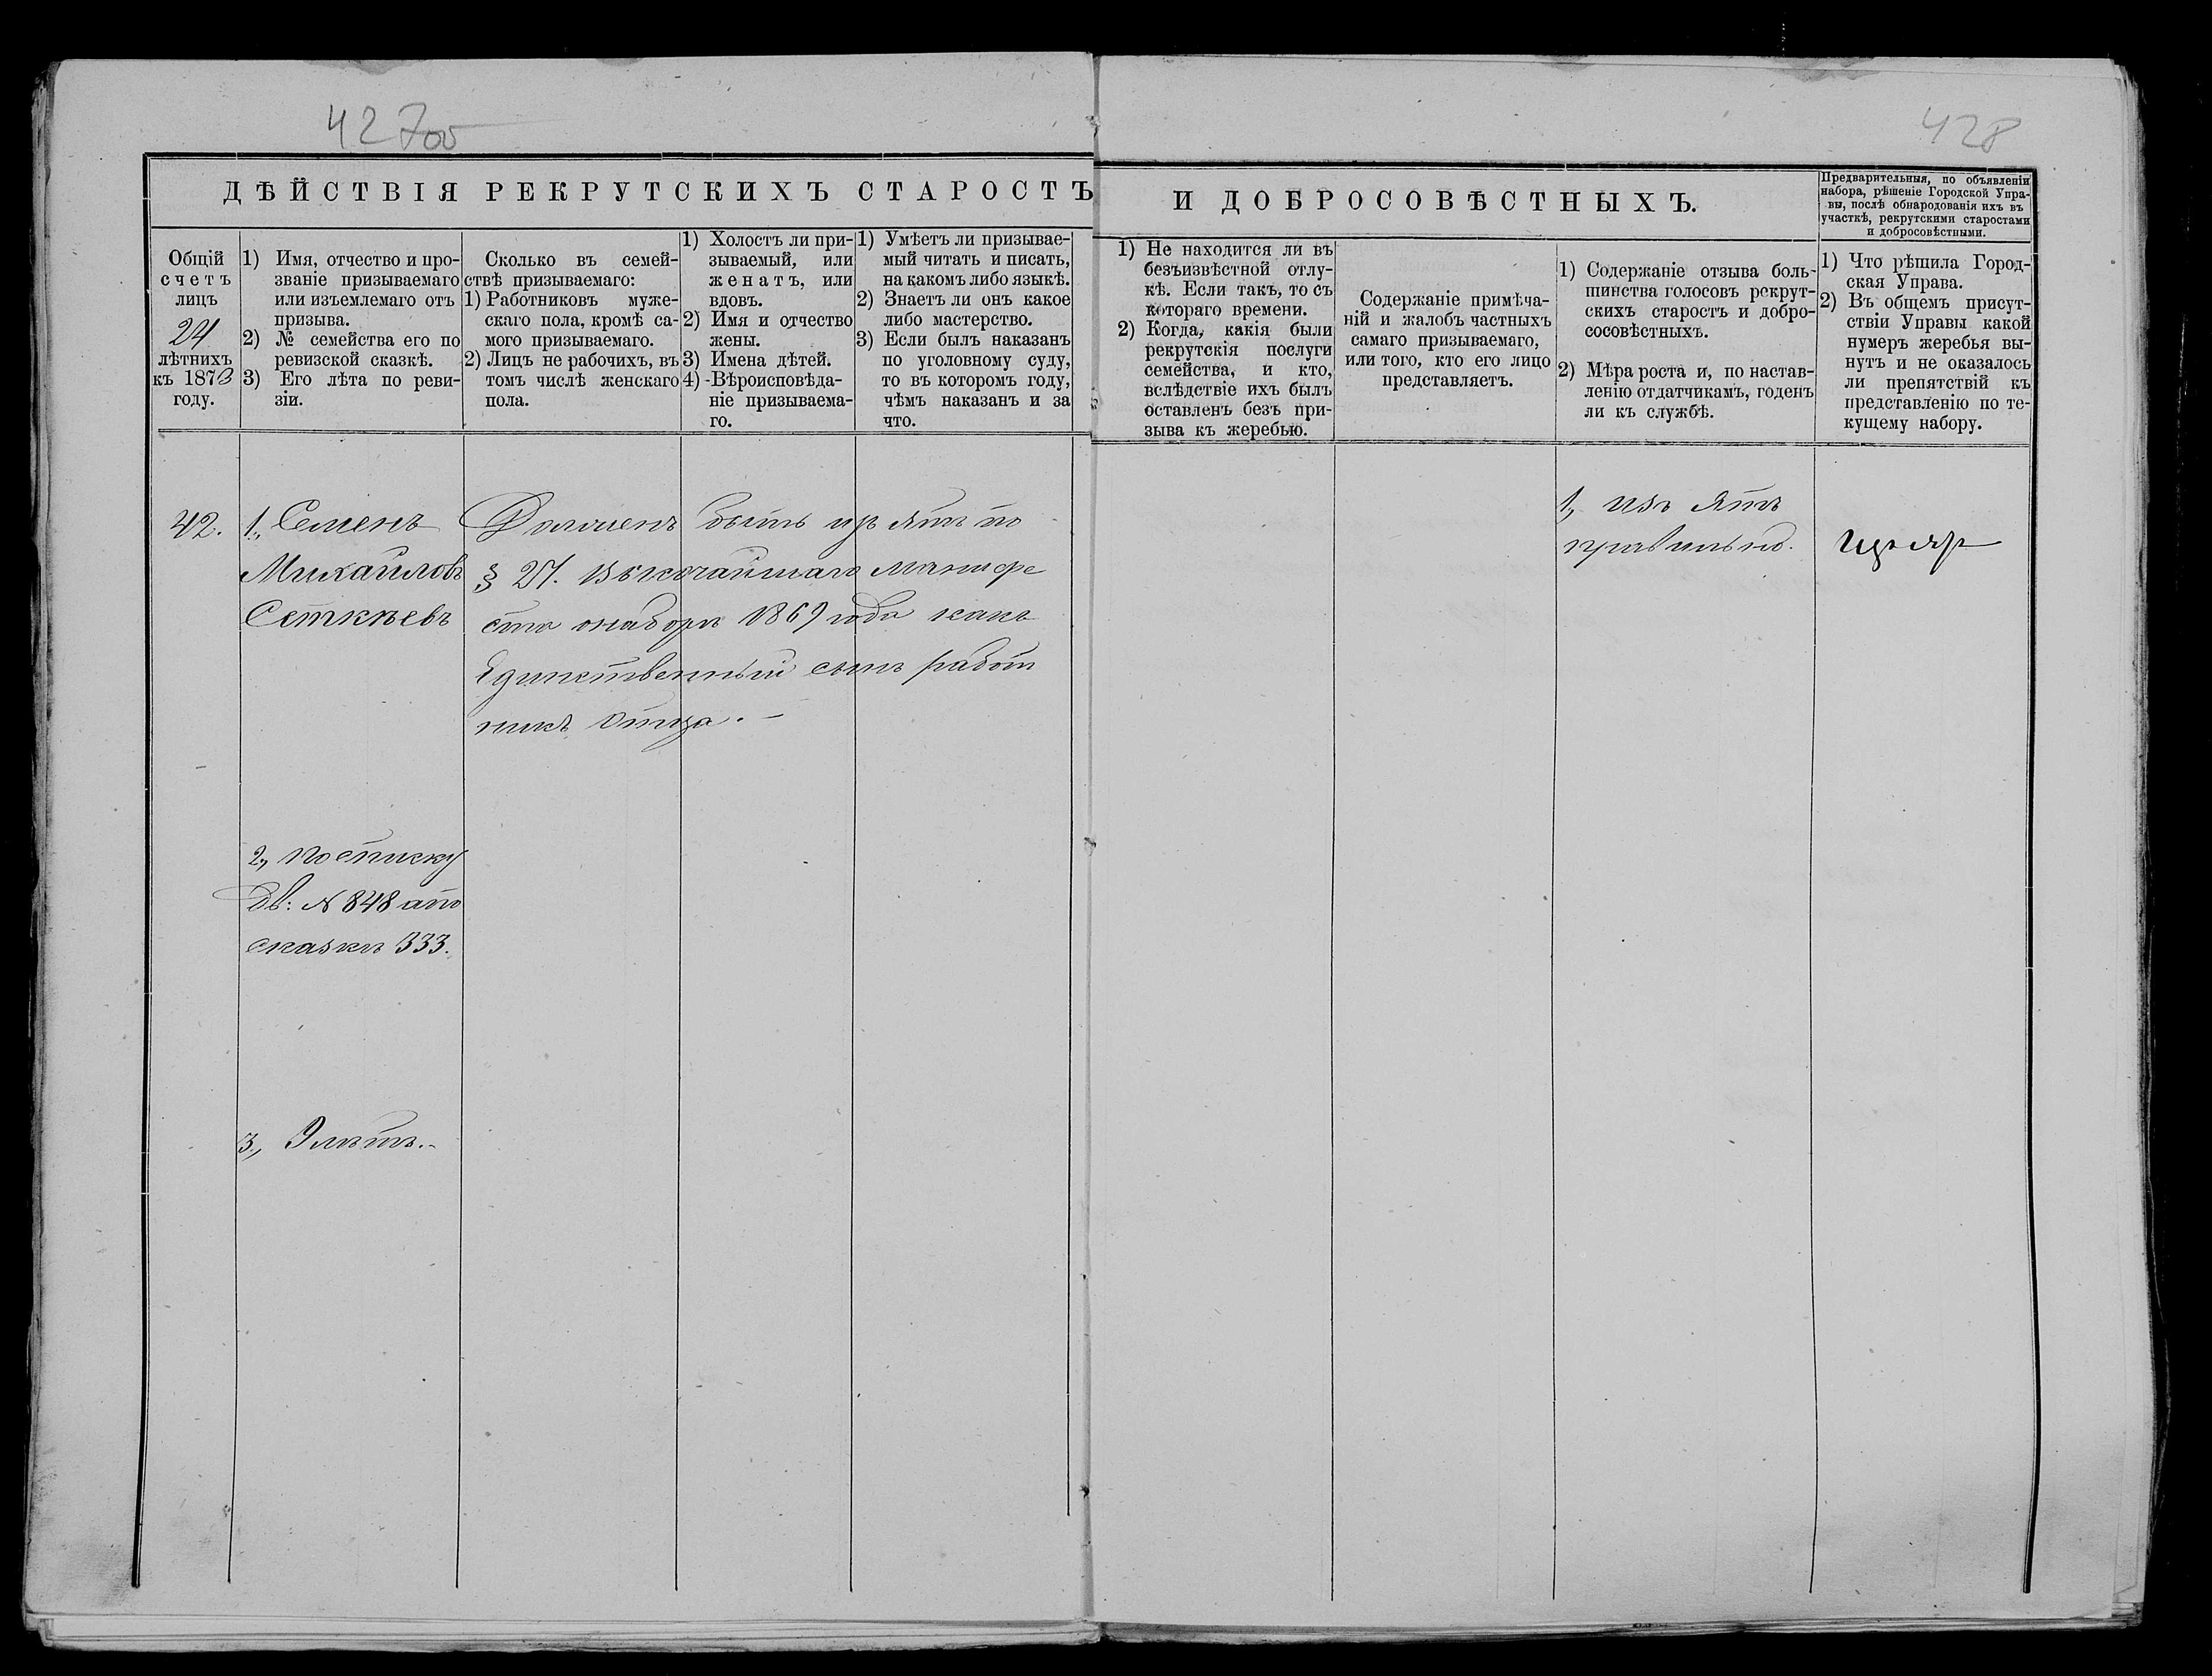 427об
428
ДѢЙСТВІЯ РЕКРУТСКИХЪ СТАРОСТЪ
И ДОБРОСОВѢСТНЫХЪ.
Предварительныя, по объявленіи
набора, рѣшеніе Городской Упра-
вы, послѣ обнародованія ихъ въ
участкѣ, рекрутскими старостами
и добросовѣстными.
Общій
счетъ
лицъ
24
лѣтнихъ
къ 1873
году.
1) Имя, отчество и про-
званіе призываемаго
или изъемлемаго отъ
призыва.
2) № семейства его по
ревизской сказкѣ.
3) Его лѣта по реви-
зіи.
Сколько въ семей-
ствѣ призываемаго:
1) Работниковъ муже-
скаго пола, кромѣ са-
мого призываемаго.
2) Лицъ не рабочихъ, въ
томъ числѣ женскаго
пола.
1) Холостъ ли при-
зываемый, или
женатъ, или
вдовъ.
2) Имя и отчество
жены.
3) Имена дѣтей.
4) Вѣроисповѣда-
ніе призываема-
го.
1) Умѣетъ ли призывае-
мый читать и писать,
на какомъ либо языкѣ.
2) Знаетъ ли онъ какое
либо мастерство.
3) Если былъ наказанъ
по уголовному суду,
то въ которомъ году,
чѣмъ наказанъ и за
что.
1) Не находится ли въ
безъизвѣстной отлу-
кѣ. Если такъ, то съ
котораго времени.
2) Когда, какія были
рекрутскія послуги
семейства, и кто,
вслѣдствіе ихъ былъ
оставленъ безъ при-
зыва къ жеребью.
Содержаніе примѣча-
ній и жалобъ частныхъ
самаго призываемаго,
или того, кто его лицо
представляетъ.
1) Содержаніе отзыва боль-
шинства голосовъ рекрут-
скихъ старостъ и добро-
сосовѣстныхъ.
2) Мѣра роста и, по настав-
ленію отдатчикамъ, годенъ
ли къ службѣ.
1) Что рѣшила Город-
ская Управа.
2) Въ общемъ присут-
ствіи Управы какой
нумеръ жеребья вы-
нутъ и не оказалось
ли препятствій къ
представленію по те-
кущему набору.
42.
1, Семенъ
Михайловъ
Сеткѣевъ
2, по списку
дв: № 848 а по
сказкѣ 333.
3, 9 лѣтъ.-
Долженъ быть изъятъ по
§ 27. Высочайшаго Манифе
ста о наборѣ 1869 года какъ
Единственный сынъ работ
никъ Отца. -
1, изъятъ
правильно.